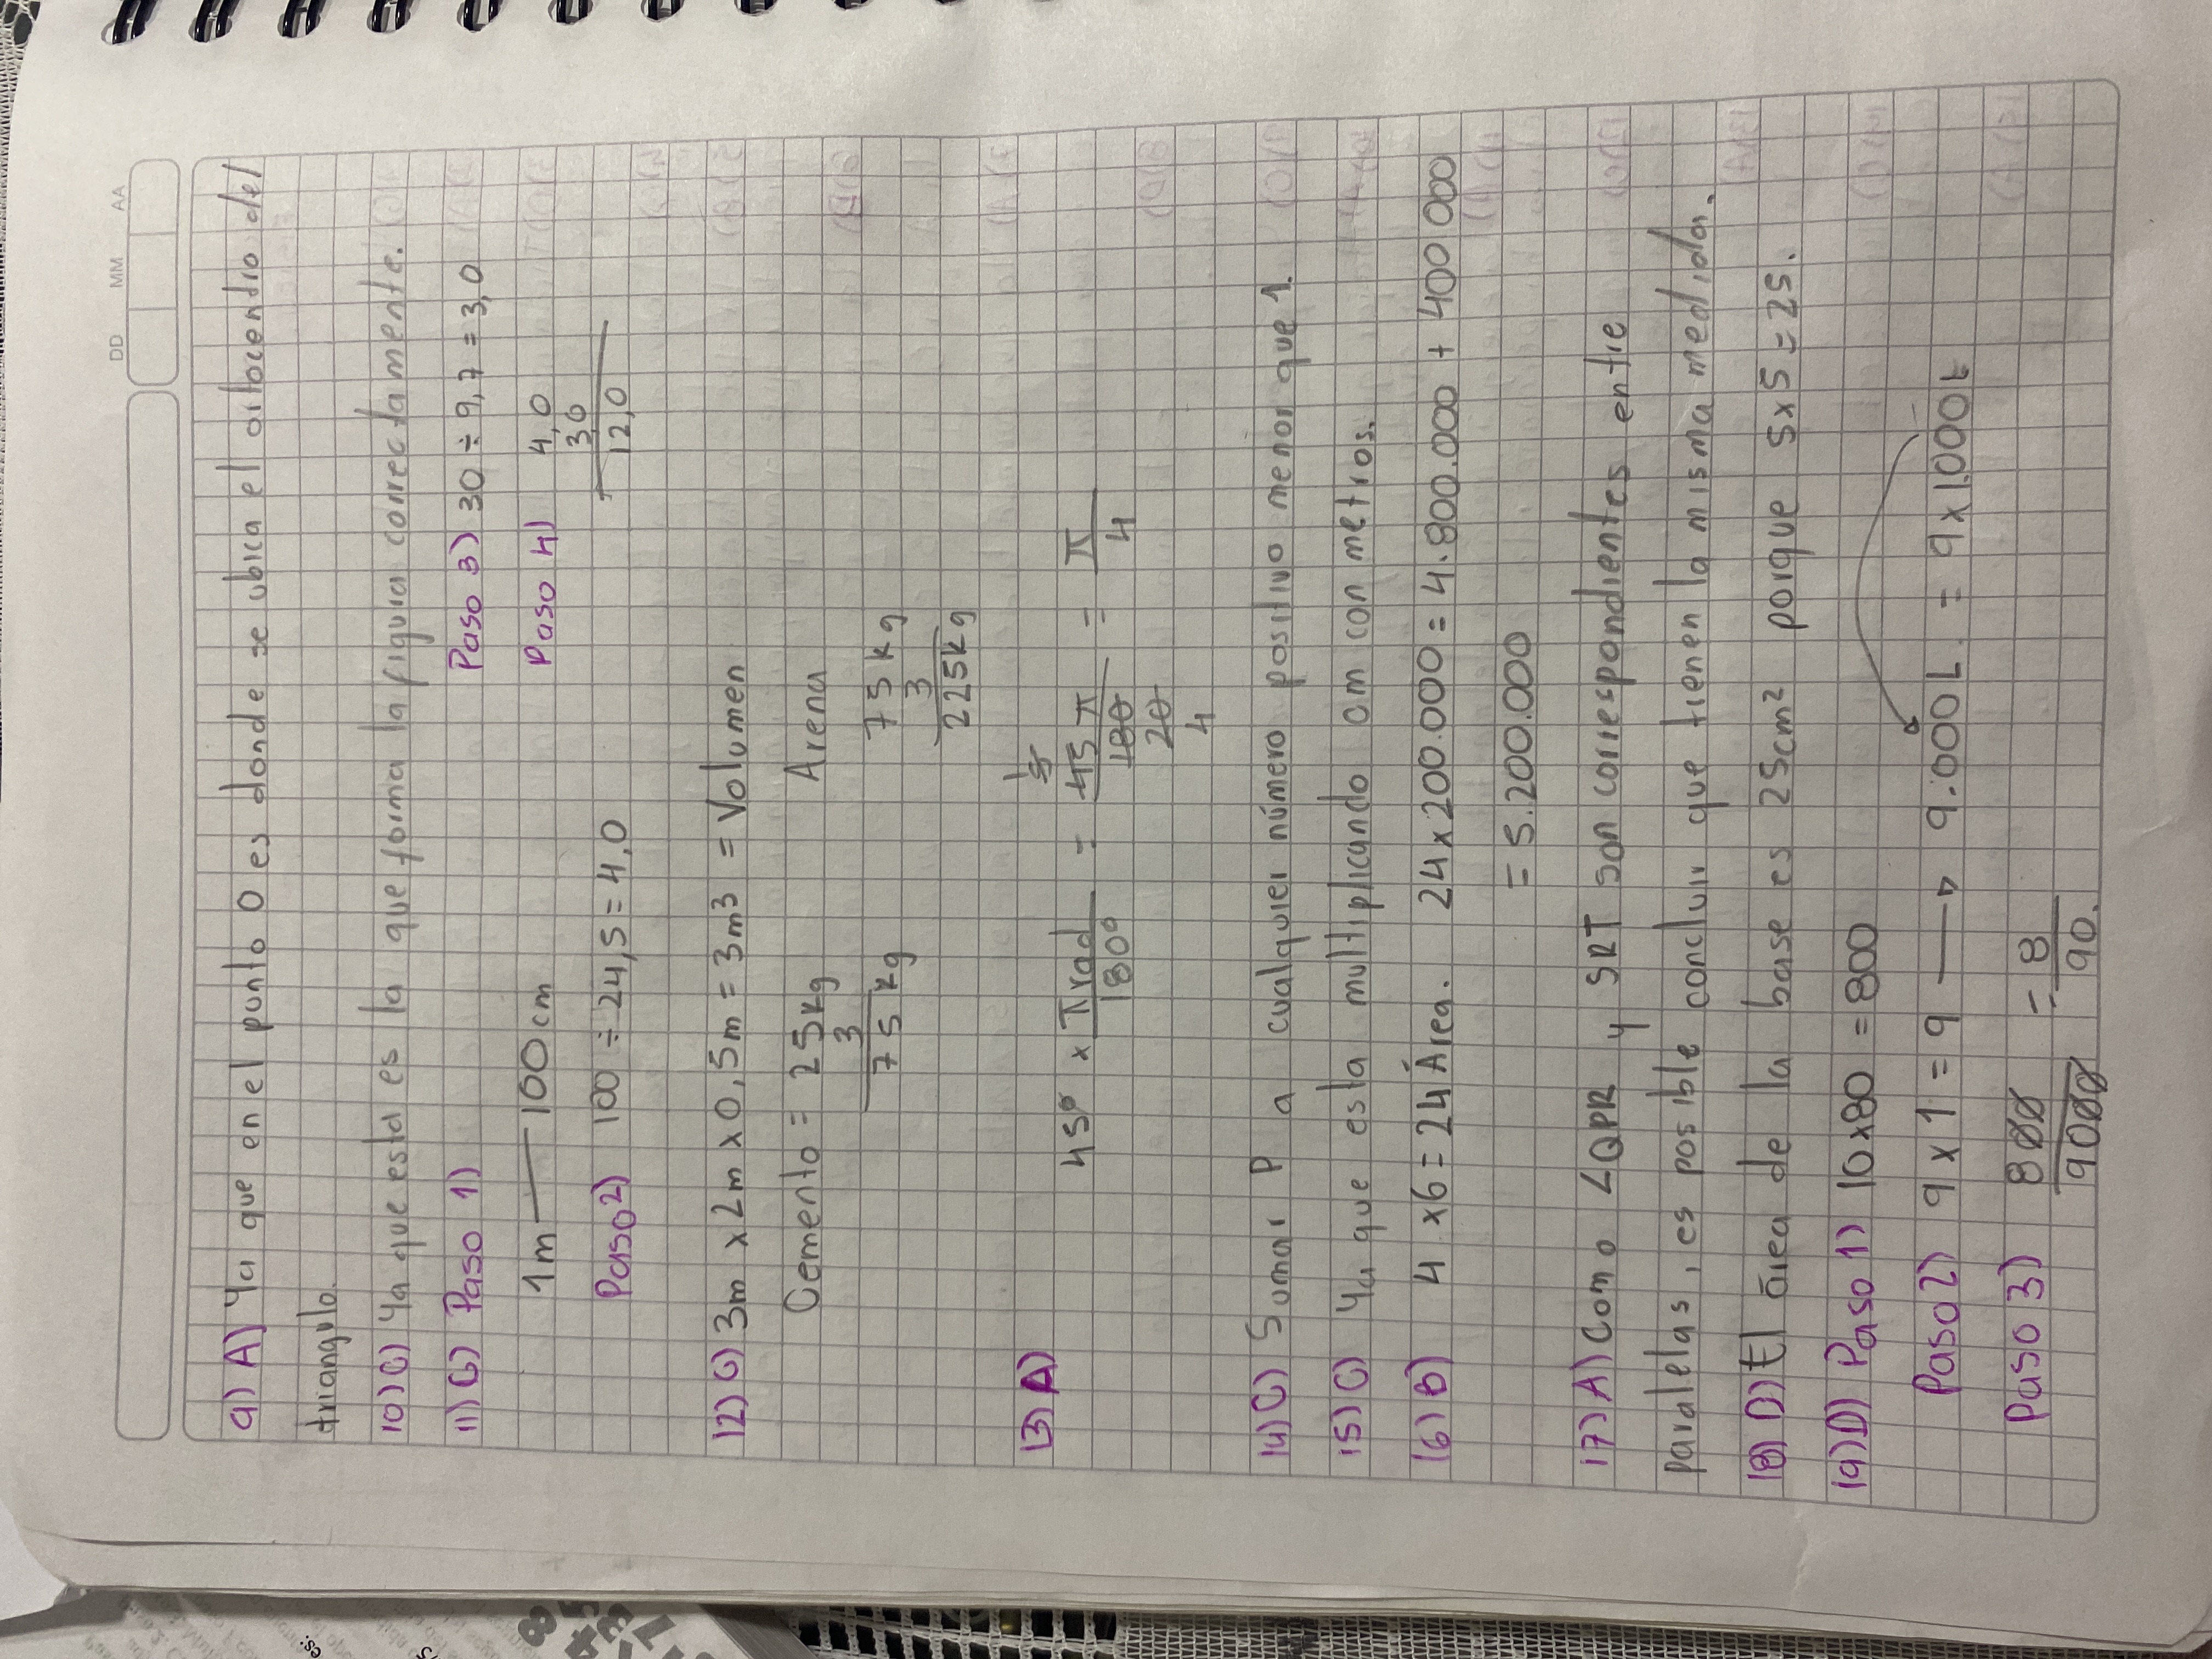 DD MM AA
9) A) Ya que en el punto O es donde se ubica el ortocentro del
triangulo.
10) C) Ya que esta es la que forma la figura correctamente.
11) C) Paso 1) Paso 3) 30 ÷ 9,7 = 3,0
1m — 100cm Paso 4) 4,0
3,0
Paso 2) 100 ÷ 24,5 = 4,0 12,0
12) C) 3m x 2m x 0,5m = 3m3 = Volumen
Cemento = 25kg Arena
3 75 kg
75 kg 3
225kg
13) A)
45° x π rad / 180° = 45 π / 180 = π / 4
5
20
4
14) C) Sumar P a cualquier número positivo menor que 1.
15) C) Ya que esta multiplicando cm con metros.
16) B) 4 x 6 = 24 Área. 24 x 200.000 = 4.800.000 + 400 000
= 5.200.000
17) A) Como ∠QPR y SRT son correspondientes entre
paralelas, es posible concluir que tienen la misma medida.
18) D) El área de la base es 25cm² porque 5x5=25.
19) D) Paso 1) 10x80 = 800
Paso 2) 9 x 1 = 9 → 9.000L. = 9x1.000L
Paso 3) 800 / 9000 = 8 / 90.